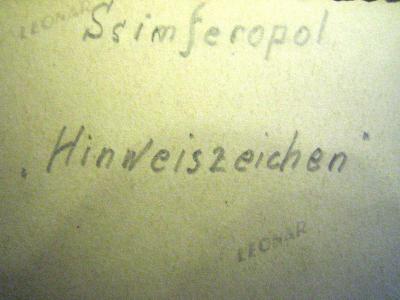 LEONAR
Ssimferopol
„Hinweiszeichen"
LEONAR